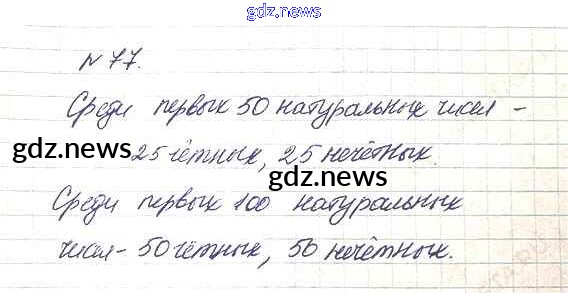 gdz.news
№77.
Среди первых 50 натуральных чисел -
gdz.news 25 чётных, 25 нечётных.
gdz.news
Среди первых 100 натуральных
чисел - 50 чётных, 50 нечётных.